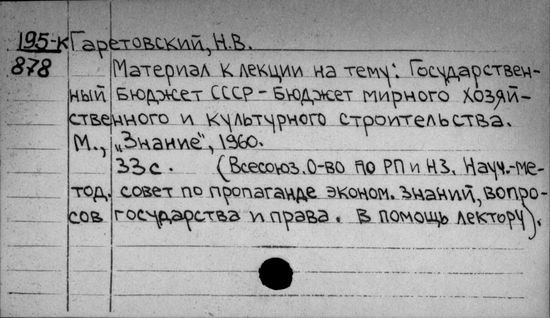 195-к Гаретовский, Н.В.
878 Материал к лекции на тему: Государствен-
ный бюджет СССР - бюджет мирного хозяй-
ственного и культурного строительства.
М., „Знание", 1960.
33с. (Всесоюз. О-во по РП и НЗ. Науч.-ме-
тод. совет по пропаганде эконом. знаний, вопро-
сов государства и права. В помощь лектору).